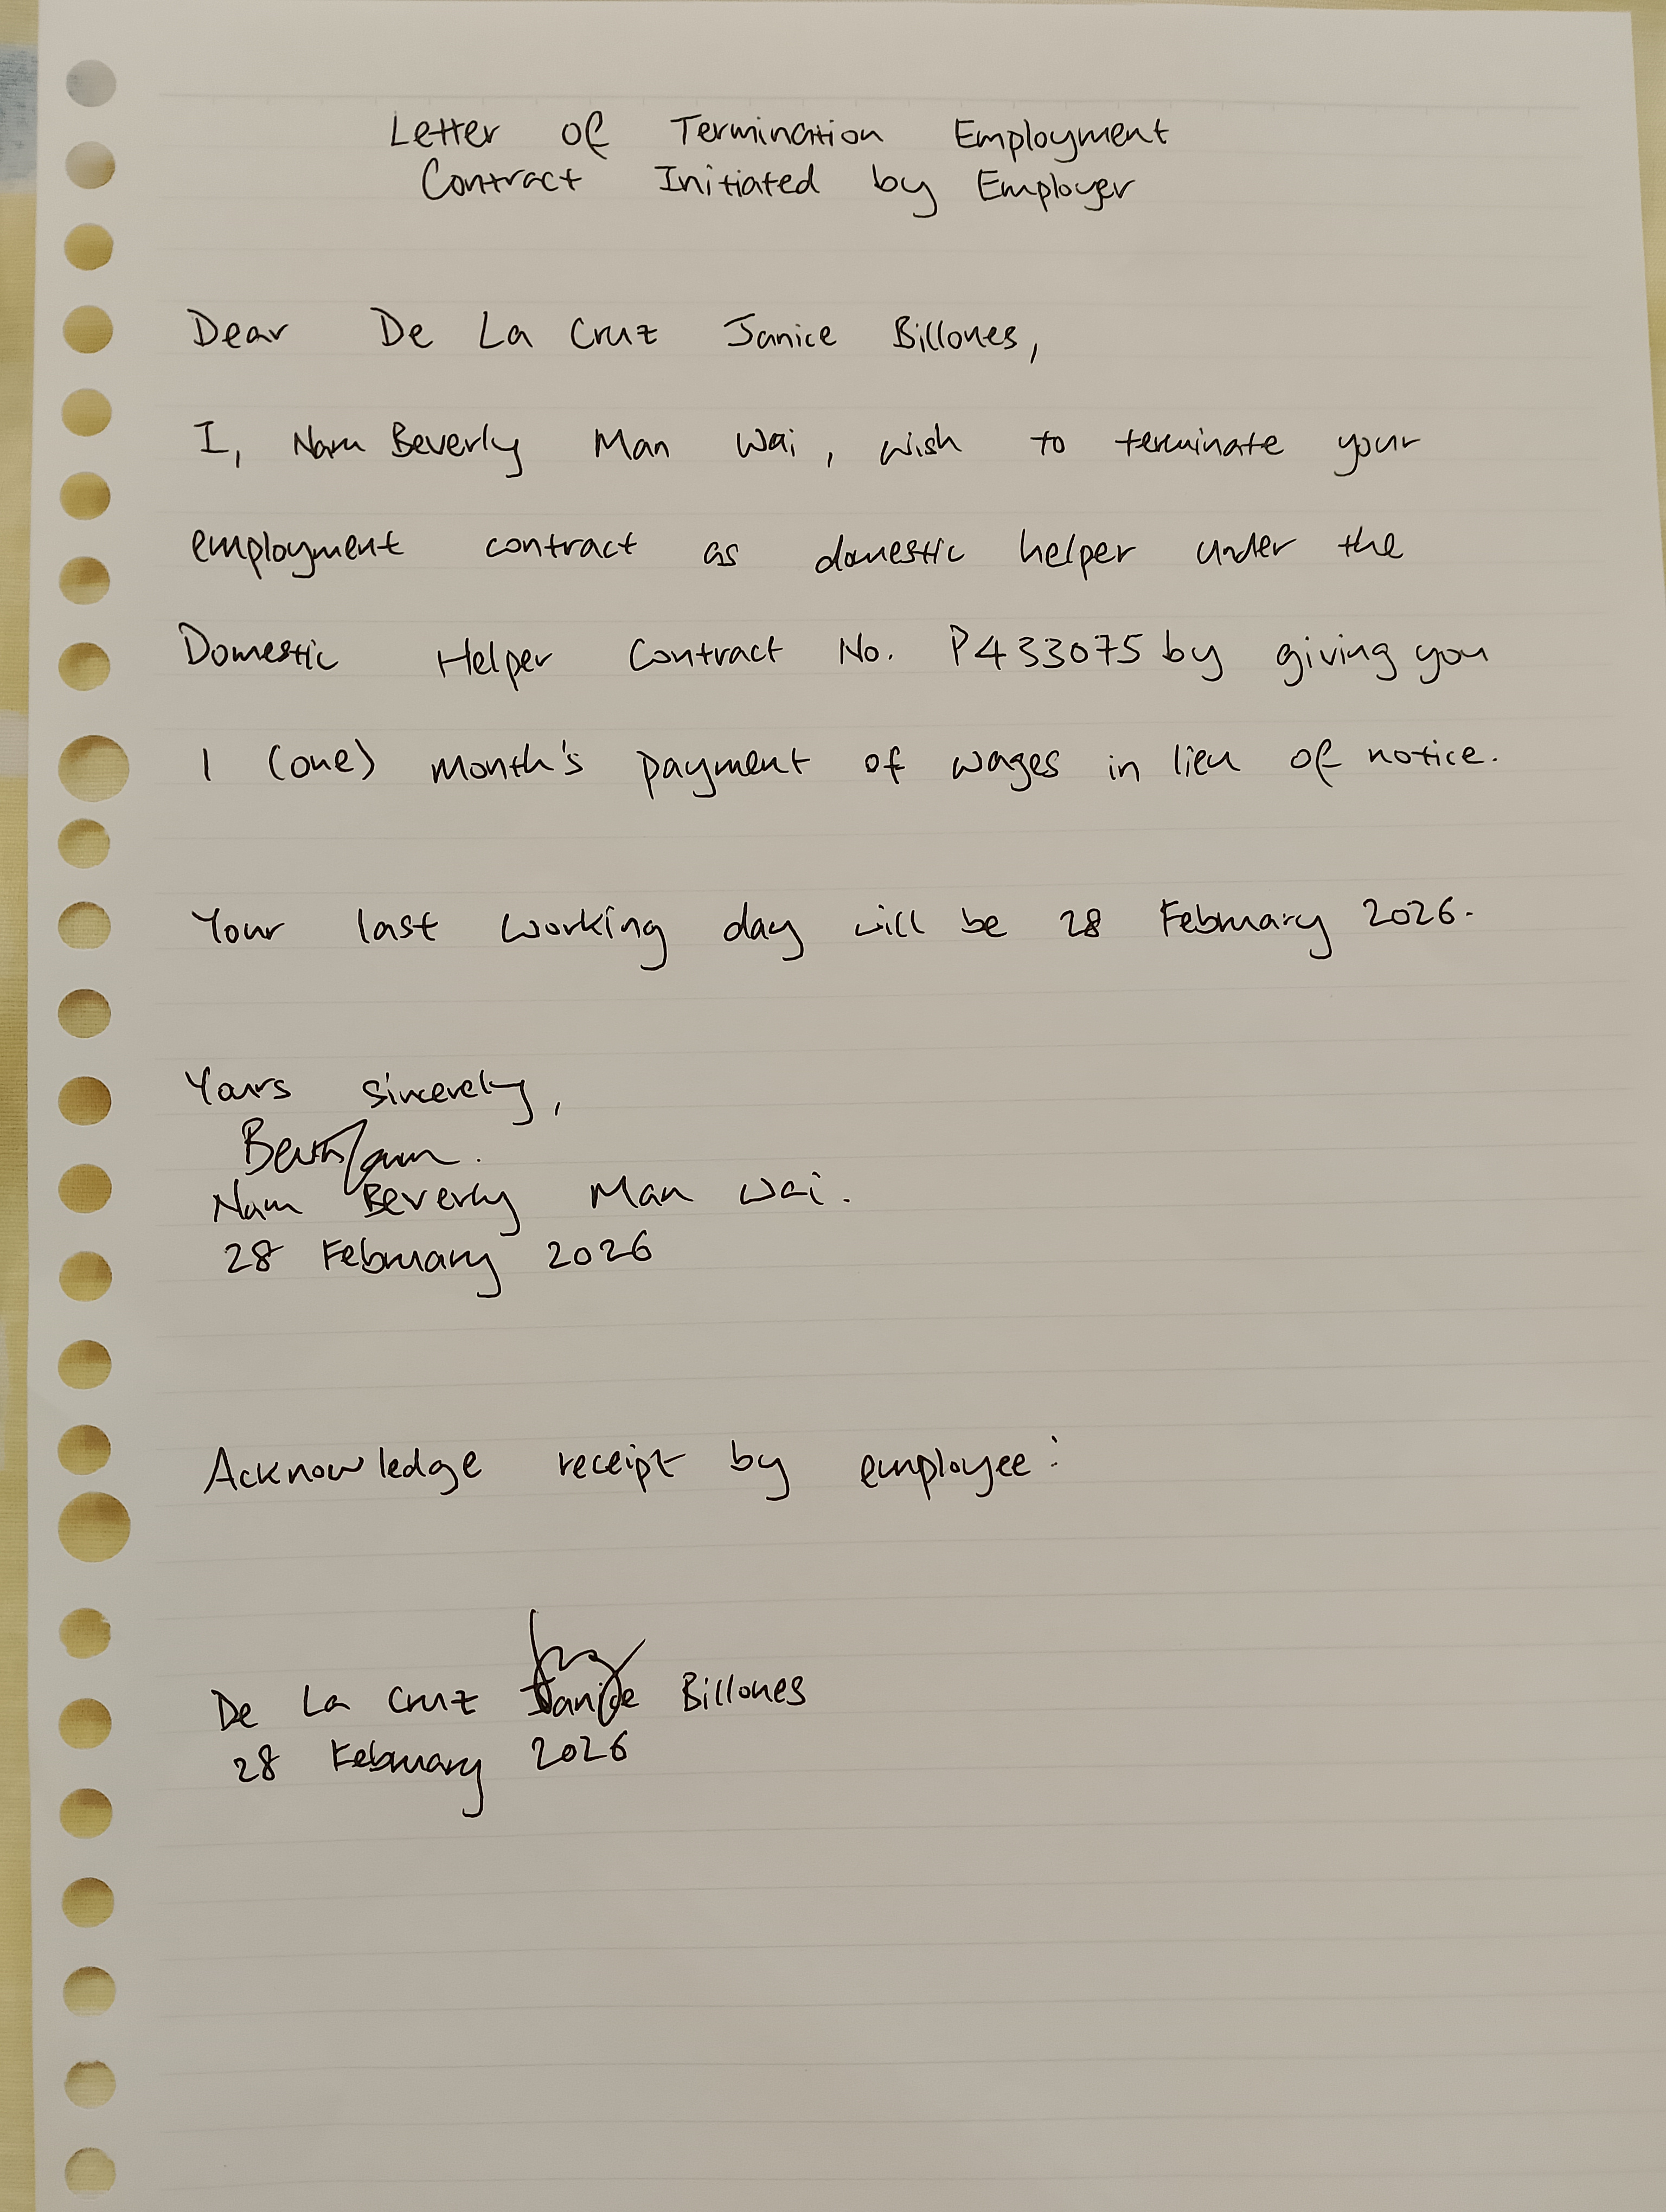 Letter of Termination Employment
Contract Initiated by Employer
Dear De La Cruz Janice Billones,
I, Nam Beverly Man Wai, wish to terminate your
employment contract as domestic helper under the
Domestic Helper Contract No. P433075 by giving you
1 (one) month's payment of wages in lieu of notice.
Your last working day will be 28 February 2026.
Yours sincerely,
Nam Beverly Man Wai.
28 February 2026
Acknowledge receipt by employee:
De La Cruz Janice Billones
28 February 2026